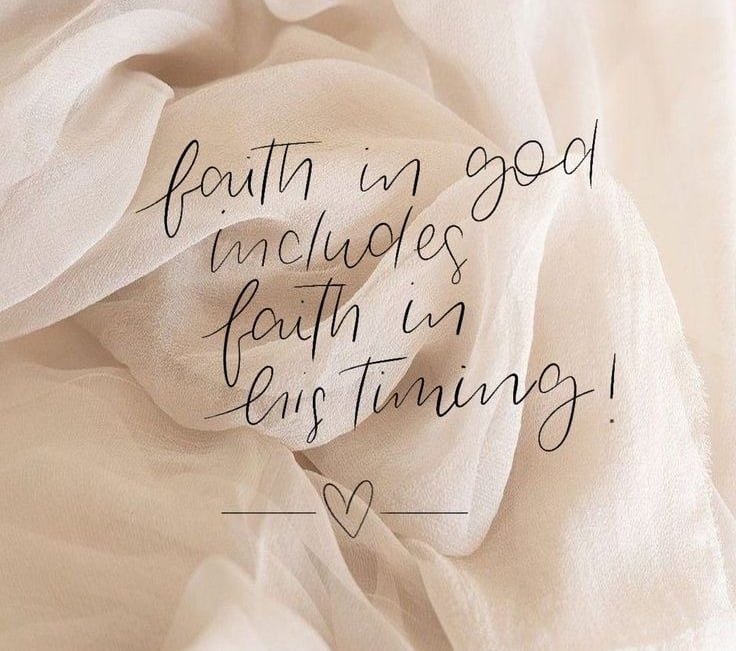 faith in god
includes
faith in
his timing!